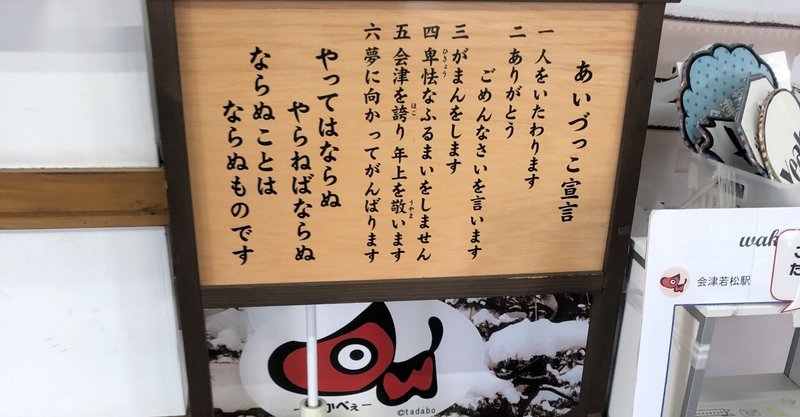 あいづっこ宣言
一 人をいたわります
二 ありがとう
ごめんなさいを言います
三 がまんをします
四 卑怯なふるまいをしません
ひきょう
五 会津を誇り 年上を敬います
ほこ
うやま
六 夢に向かってがんばります
やってはならぬ
やらねばならぬ
ならぬことは
ならぬものです
かべぇ
©tadabo
wak
会津若松駅